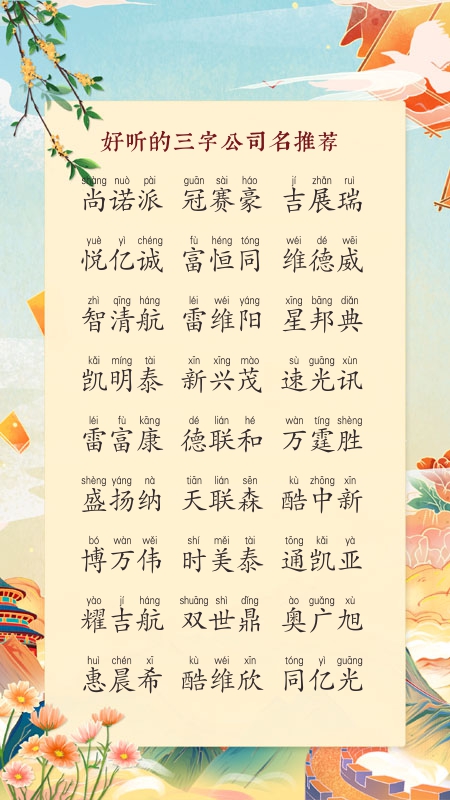 好听的三字公司名推荐
shàng nuò pài guān sài háo jí zhǎn ruì
尚诺派 冠赛豪 吉展瑞
yuè yì chéng fù héng tóng wéi dé wēi
悦亿诚 富恒同 维德威
zhì qīng háng léi wéi yáng xīng bāng diǎn
智清航 雷维阳 星邦典
kǎi míng tài xīn xīng mào sù guāng xùn
凯明泰 新兴茂 速光讯
léi fù kāng dé lián hé wàn tíng shèng
雷富康 德联和 万霆胜
shèng yáng nà tiān lián sēn kù zhōng xīn
盛扬纳 天联森 酷中新
bó wàn wěi shí měi tài tōng kǎi yà
博万伟 时美泰 通凯亚
yào jí háng shuāng shì dǐng ào guǎng xù
耀吉航 双世鼎 奥广旭
huì chén xī kù wéi xīn tóng yì guāng
惠晨希 酷维欣 同亿光